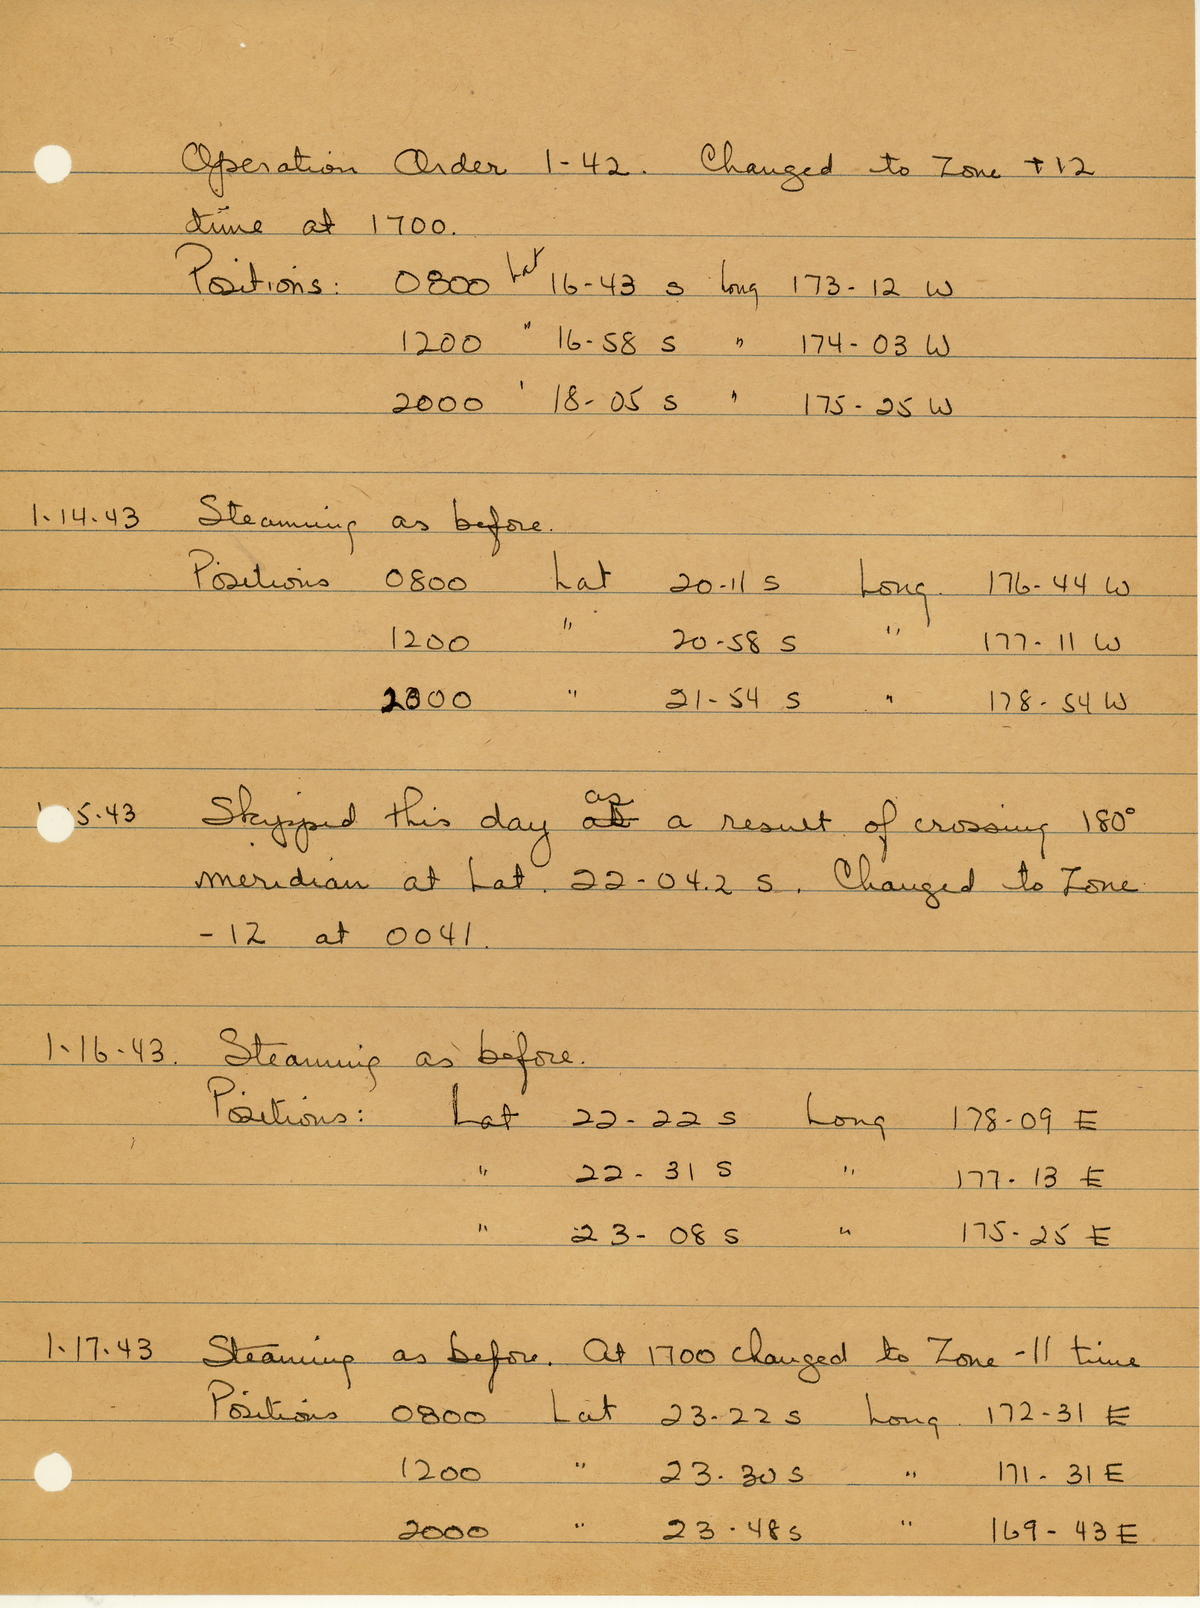 Operation Order 1-42. Changed to Zone +12
time at 1700.
Positions: 0800 Lat 16-43 S Long 173-12 W
1200 " 16-58 S " 174-03 W
2000 ' 18-05 S " 175-25 W
1-14-43 Steaming as before.
Positions 0800 Lat 20-11 S Long. 176-44 W
1200 " 20-58 S " 177-11 W
2000 " 21-54 S " 178-54 W
5-43 Skipped this day as a result of crossing 180°
meridian at Lat. 22-04.2 S. Changed to Zone
-12 at 0041.
1-16-43. Steaming as before.
Positions: Lat 22-22 S Long 178-09 E
" 22-31 S " 177-13 E
" 23-08 S " 175-25 E
1-17-43 Steaming as before. At 1700 changed to Zone -11 time
Positions 0800 Lat 23-22 S Long. 172-31 E
1200 " 23-30 S " 171-31 E
2000 " 23-48 S " 169-43 E